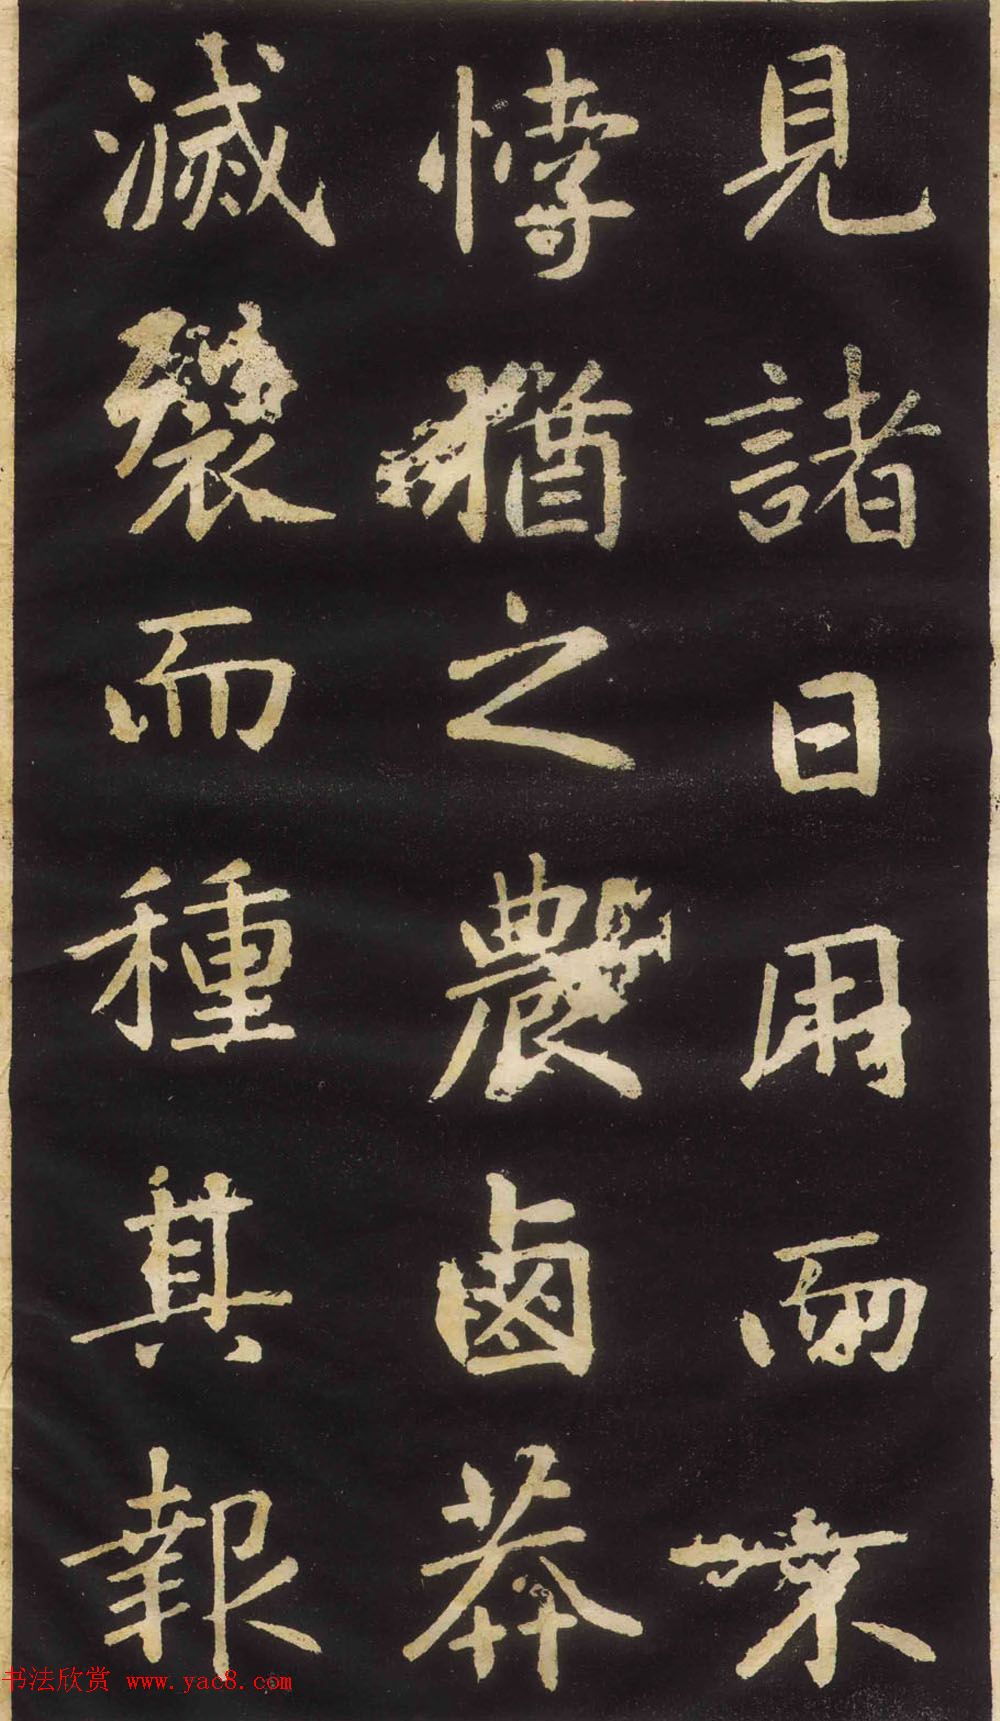 見諸日用而
悖猶之農鹵莽
滅裂而種其報
书法欣赏 www.yac8.com